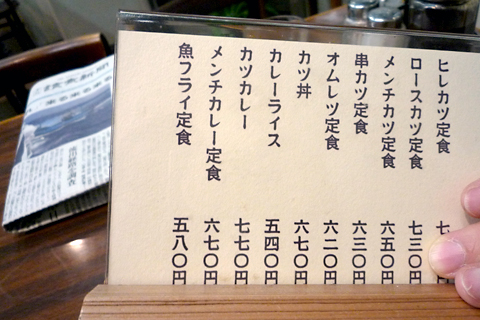 ヒレカツ定食 七
ロースカツ定食 七三〇円
メンチカツ定食 六五〇円
串カツ定食 六三〇円
オムレツ定食 六二〇円
カツ丼 六七〇円
カレーライス 五四〇円
カツカレー 七七〇円
メンチカレー定食 六七〇円
魚フライ定食 五八〇円
読売新聞